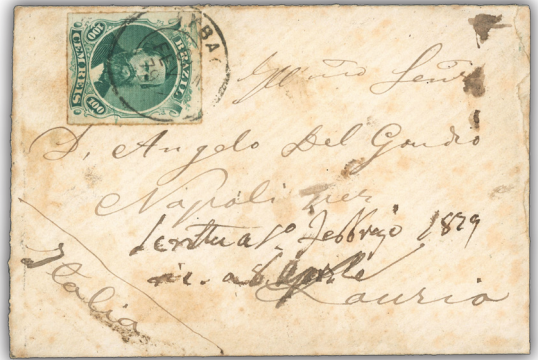 BRAZIL
CEM REIS
100
100
Illmo Señr
D. Angelo Del Gaudio
Napoli per
Scritta 1º Febbrajo 1879
a 8 Aprile
Lauria
Italia